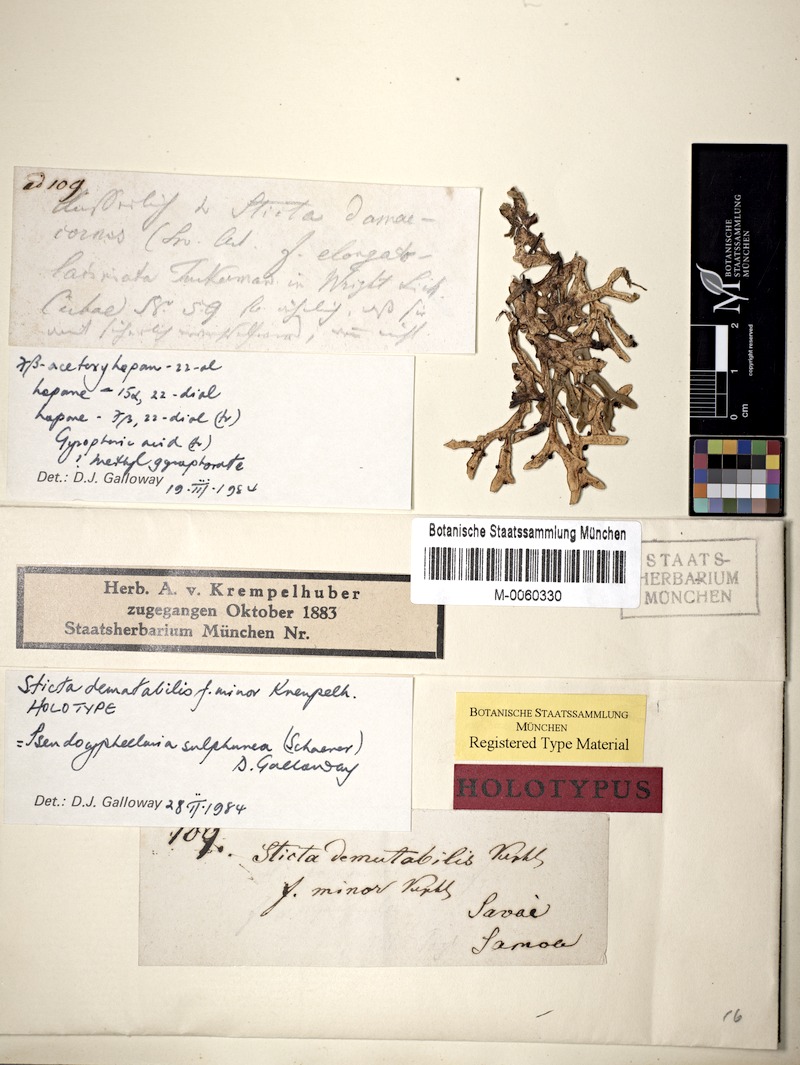 ad 109
Sticta damae-
cornis (Sw. Ach. f. elongato-
laciniata Tuckerman in Wright Lich.
Cubae) Nr. 59
7β-acetoxyhopan-22-ol
hopane-15α, 22-diol
hopane-7β, 22-diol (tr)
Gyrophoric acid (tr)
! methyl gyrophorate
Det.: D.J. Galloway 19.III.1984
BOTANISCHE
STAATSSAMMLUNG
MÜNCHEN
copyright reserved
0 1 2
cm
Botanische Staatssammlung München
M-0060330
STAATS-
HERBARIUM
MÜNCHEN
Herb. A. v. Krempelhuber
zugegangen Oktober 1883
Staatsherbarium München Nr.
Sticta demutabilis f. minor Krempelh.
HOLOTYPE
= Pseudocyphellaria sulphurea (Schaerer)
D. Galloway
Det.: D.J. Galloway 28.II.1984
BOTANISCHE STAATSSAMMLUNG
MÜNCHEN
Registered Type Material
HOLOTYPUS
109.
Sticta demutabilis Krphb
f. minor Krphb
Savaè
Samoa
16